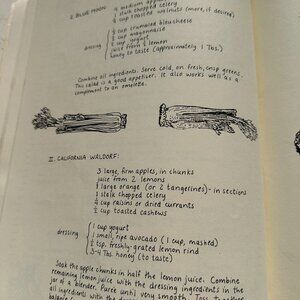 I. BLUE MOON:
4 medium apples
1 stalk chopped celery
½ cup toasted walnuts (more, if desired)
½ cup crumbled bleucheese
½ cup mayonnaise
dressing ½ cup yogurt
juice from ½ lemon
honey to taste (approximately 1 Tbs.)
Combine all ingredients. Serve cold, on fresh, crisp greens.
This salad is a good appetizer. It also works well as a
complement to an omelette.
II. CALIFORNIA WALDORF:
3 large, firm apples, in chunks
juice from 2 lemons
1 large orange (or 2 tangerines)- in sections
1 stalk chopped celery
¼ cup raisins or dried currants
½ cup toasted cashews
1 cup yogurt
dressing 1 small, ripe avocado (1 cup, mashed)
½ tsp. freshly-grated lemon rind
3-4 Tbs. honey (to taste)
Soak the apple chunks in half the lemon juice. Combine
remaining lemon juice with the dressing ingredients in the
jar of a blender. Purée until very smooth. Toss together
all ingredients with the dressing